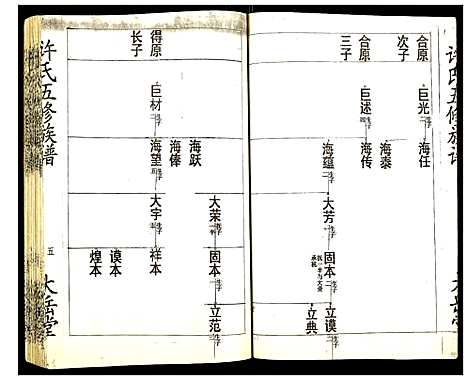 许氏五修族谱
合原
次子
合原
三子
巨光
巨述
海任
海泰
海传
海蕴
大芳
固本
立谟
立典
得原
长子
巨材
海跃
海俸
海望
大荣
大宇
固本
祥本
谟本
煌本
立范
许氏五修族谱
五
大岳堂